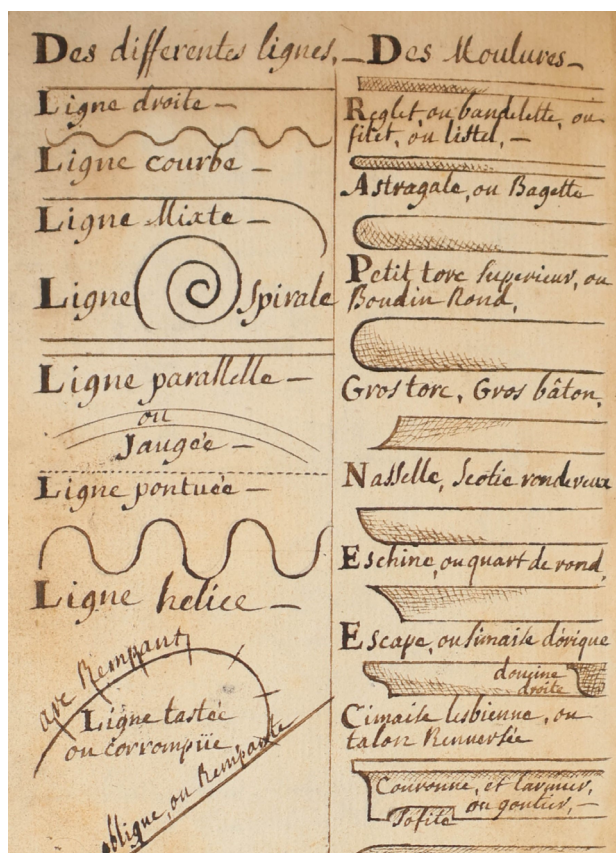 Des differentes lignes,
Ligne droite
Ligne courbe
Ligne Mixte
Ligne Spirale
Ligne parallelle
ou
Jaugée
Ligne pontuée
Ligne helice
arc Rempant
Ligne tastée
ou corrompüe
oblique, ou Rempante
Des Moulures
Reglet, ou bandelette, ou
filet, ou listel,
Astragale, ou Bagette
Petit tore Superieur, ou
Boudin Rond,
Gros tore, Gros bâton,
Nasselle, Scotie rondereux
Eschine, ou quart de rond,
Escape, ou Simaise dorique
doucine
droite
Cimaise lesbienne, ou
talon Renversée
Couronne, et larmier,
ou goutier,
Sofite